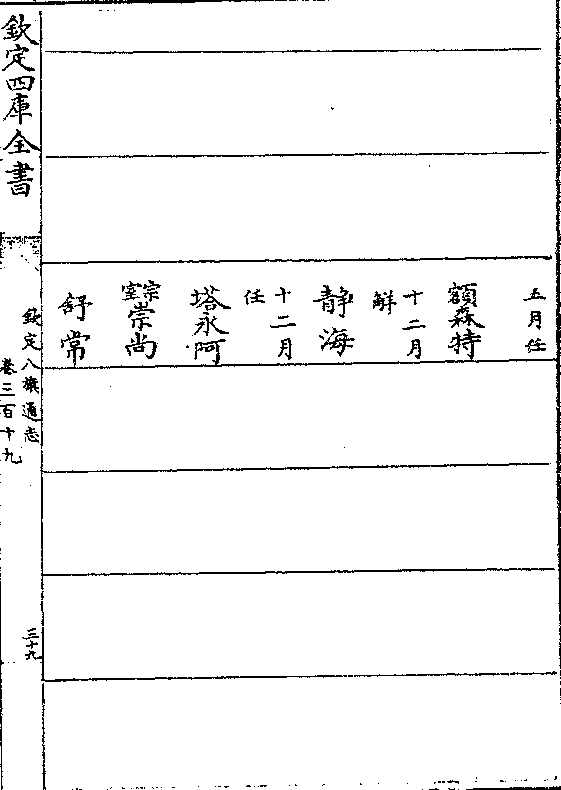 五月任
額森特
十二月
解
靜海
十二月
任
塔永阿
宗室崇尚
舒常
欽定四庫全書
欽定八旗通志
卷三百十九
三十九